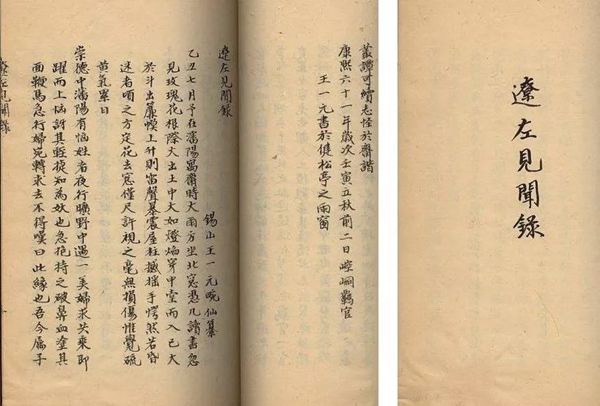 遼左見聞錄
叢譚可續志怪於齊諧
康熙六十一年歲次壬寅立秋前二日崆峒羈官
王一元書於健松亭之雨窗
遼左見聞錄
錫山王一元畹仙纂
乙丑七月予在瀋陽寓齋時大雨方坐北窓憑几讀書忽
見玫瑰花根際火出土中大如燈焰穿中堂而入已大
於斗出簾幙上升則雷聲暴震屋柱撼搖予愕然若昏
迷者頃之方定花去窓僅尺許視之毫無損傷惟覺硫
黄氣累日
崇德中瀋陽有惱姓者夜行曠野中遇一美婦求共乘即
躍而上惱訝其輕捷知為妖也急抱持之破鼻血塗其
面鞭馬急行婦宛轉求去不得嘆曰此緣也吾今屬子
遼左見聞錄